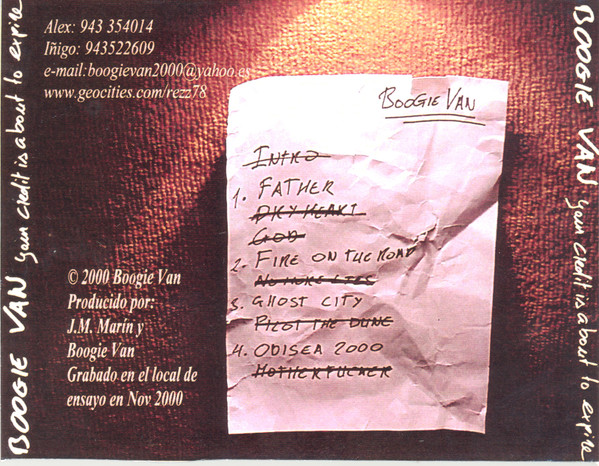 Alex: 943 354014
Iñigo: 943522609
e-mail:boogievan2000@yahoo.es
www.geocities.com/rezz78
BOOGIE VAN
INTRO
1. FATHER
DRY HEART
GOD
2. FIRE ON THE ROAD
NO MORE LIES
3. GHOST CITY
PILOT THE DUNE
4. ODISEA 2000
MOTHERFUCKER
© 2000 Boogie Van
Producido por:
J.M. Marín y
Boogie Van
Grabado en el local de
ensayo en Nov 2000
BOOGIE VAN your credit is about to expire
BOOGIE VAN your credit is about to expire